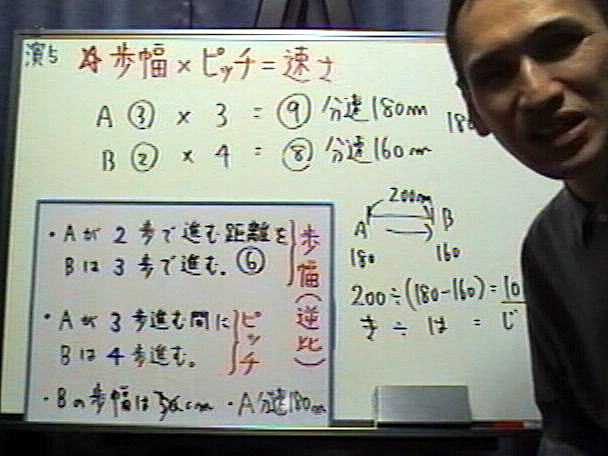 演5 ☆歩幅×ピッチ=速さ
A ③ × 3 = ⑨ 分速180m
B ② × 4 = ⑧ 分速160m
180
・Aが2歩で進む距離を
Bは3歩で進む。⑥
歩幅(逆比)
・Aが3歩進む間に
Bは4歩進む。
ピッチ
・Bの歩幅は cm ・A分速180m
200m
A B
180 160
200÷(180-160)=10
き ÷ は = じ